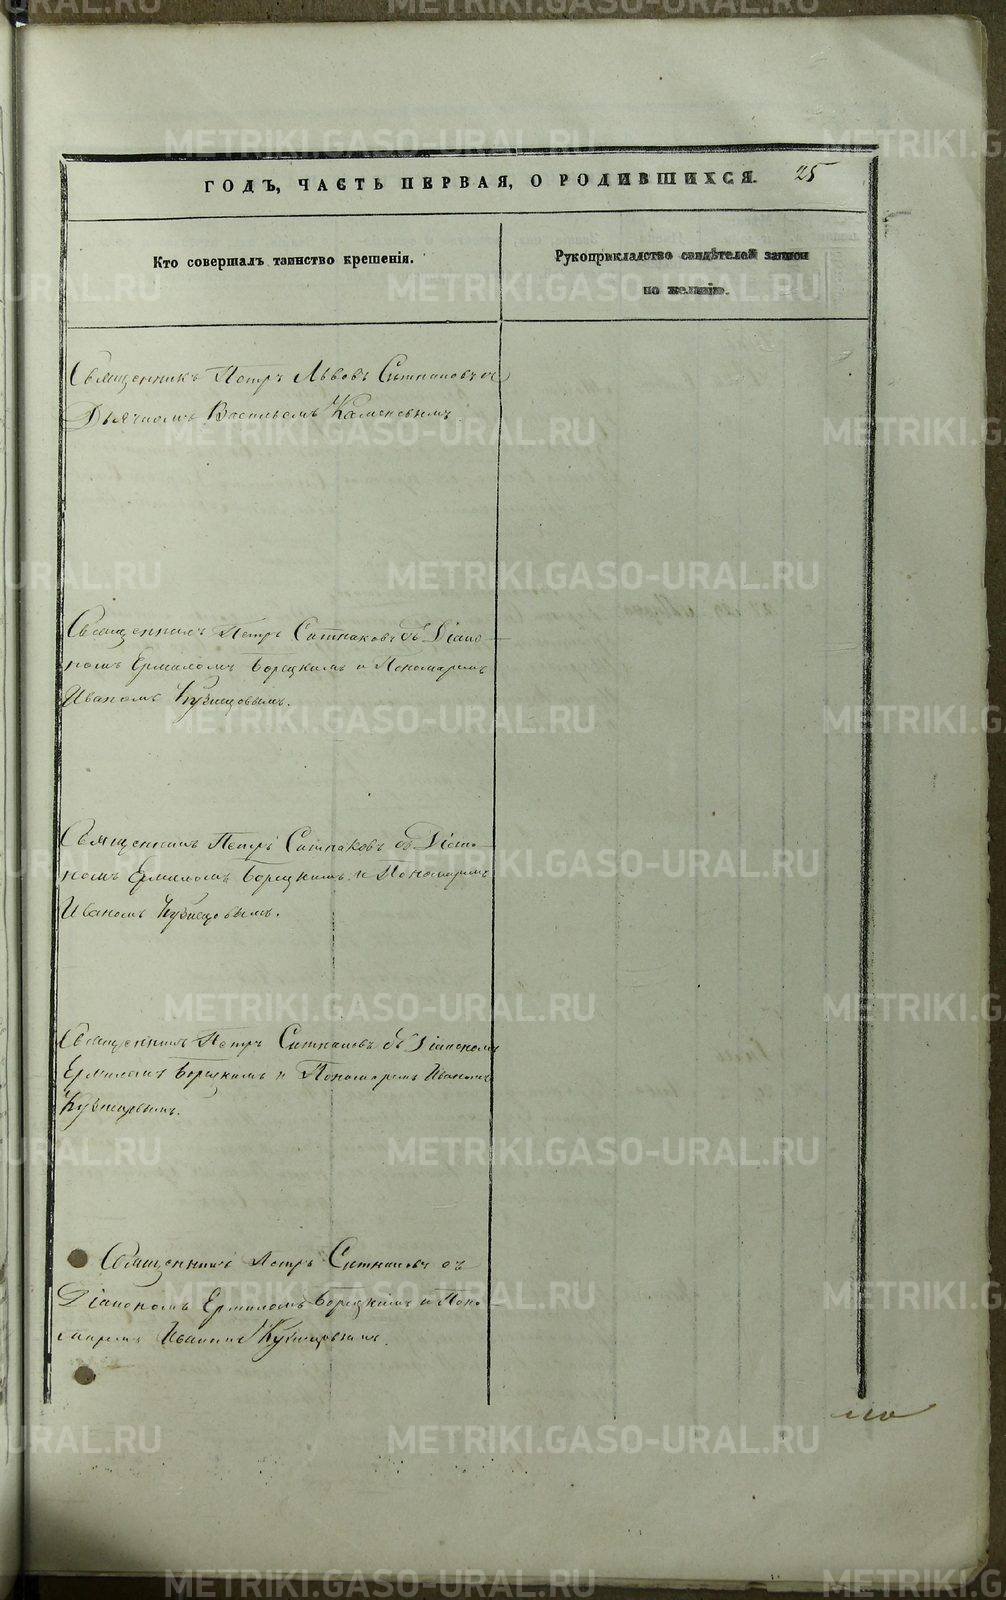 ГОДЪ, ЧАСТЬ ПЕРВАЯ, О РОДИВШИХСЯ. 25
Кто совершалъ таинство крещенія.
Рукоприкладство свидѣтелей записи
по желанію.
Священникъ Петръ Львовъ Ситниковъ съ
Дьячкомъ Васильемъ Каменевымъ
Священникъ Петръ Ситниковъ съ Діако-
номъ Ермиломъ Борецкимъ и Пономаремъ
Иваномъ Кузнецовымъ.
Священникъ Петръ Ситниковъ съ Діако-
номъ Ермиломъ Борецкимъ и Пономаремъ
Иваномъ Кузнецовымъ.
Священникъ Петръ Ситниковъ съ Діакономъ
Ермиломъ Борецкимъ и Пономаремъ Иваномъ
Кузнецовымъ.
Священникъ Петръ Ситниковъ съ
Діакономъ Ермиломъ Борецкимъ и Поно-
маремъ Иваномъ Кузнецовымъ.
METRIKI.GASO-URAL.RU